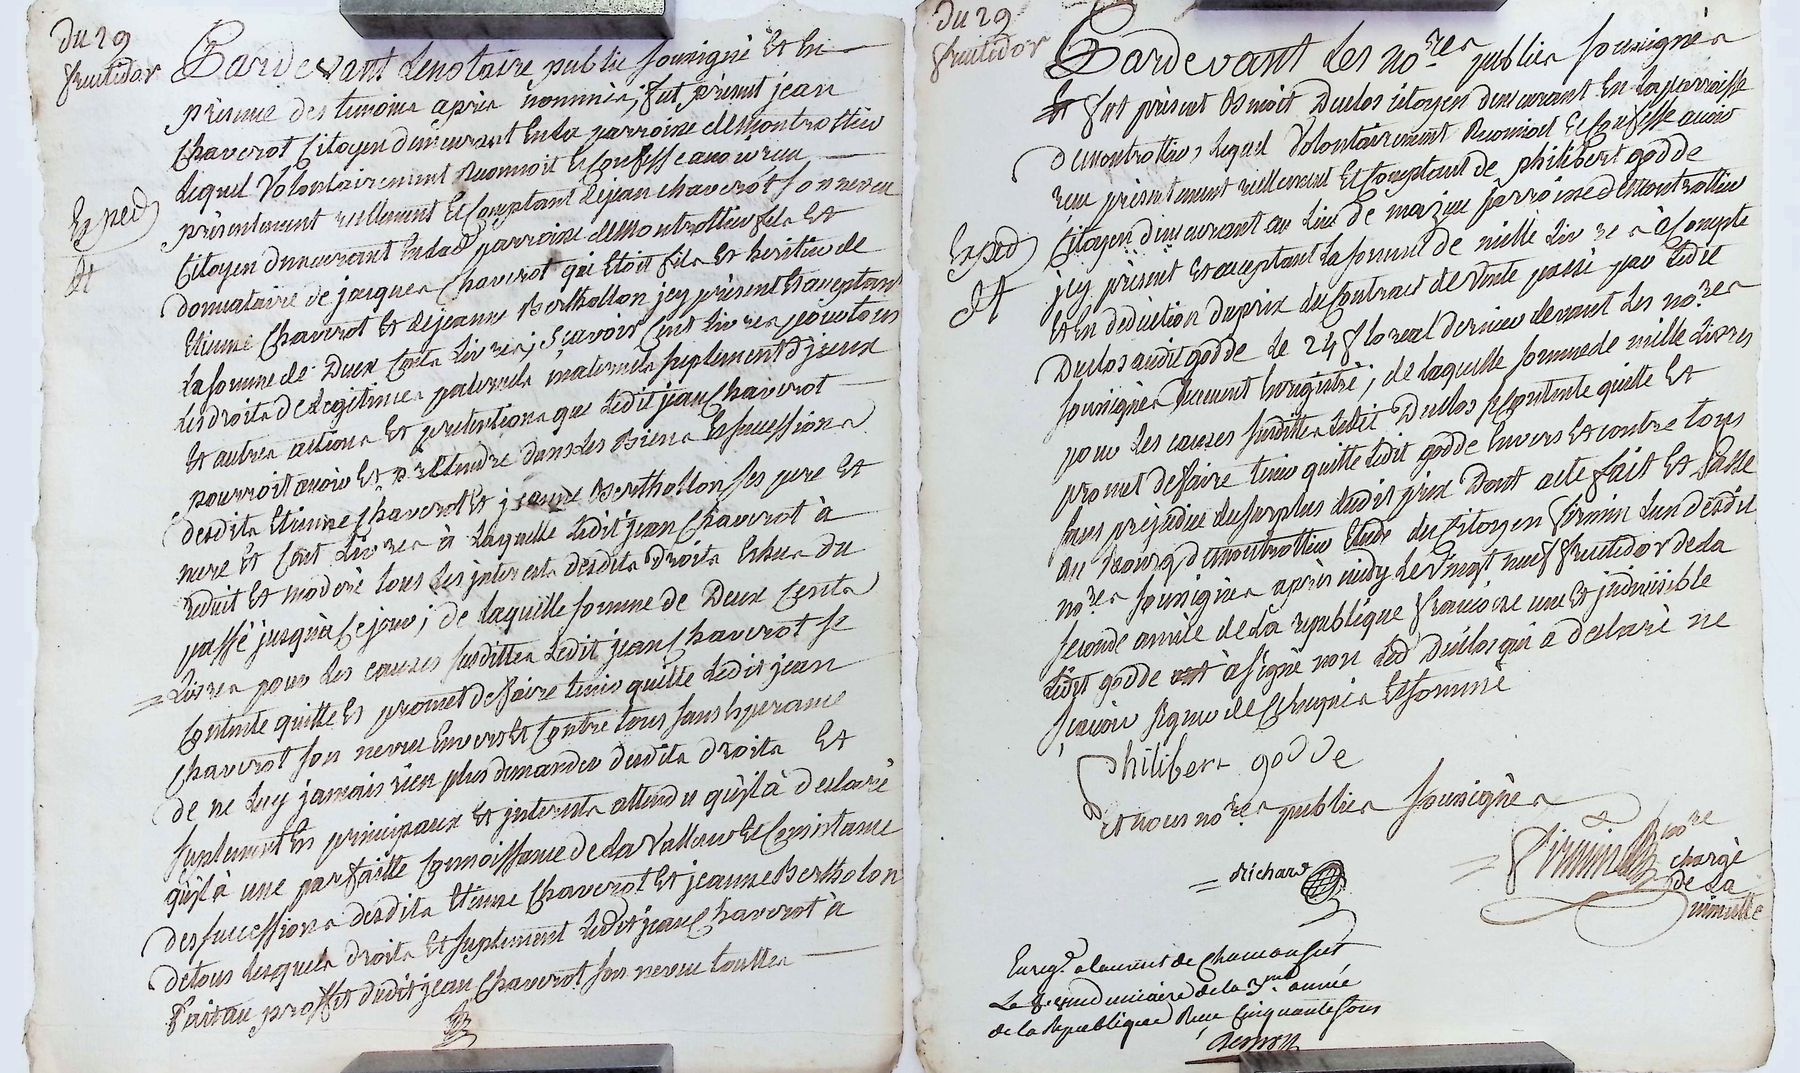 Du 29
fructidor
Pardevant le notaire public sousigné Et En
présence des temoins après nommés, fut présent jean
Chaverot Citoyen demeurant En la parroisse de montrottier
Lequel Volontairement Reconnoit Et Confesse avoir reu
présentement reellement Et Comptant de jean chaverot son neveu
Citoyen demeurant En lad. parroisse de montrottier fils Et
donnataire de jacques Chaverot qui Etoit fils Et heritier de
Etienne Chaverot Et de jeanne Berthollon jcy présent Et aceptant
La somme de Deux Cents Livres, Sçavoir Cent Livres pour tous
Les droits de Legitimes paternels maternels suplement d'jceux
Et autres actions Et pretentions que Ledit jean Chaverot
pourroit avoir Et prétendre dans Les Biens Et successions
desdits Etienne Chaverot Et jeanne Berthollon ses pere Et
mere Et Cent Livres à Laquelle Ledit jean Chaverot à
reduit Et moderé tous Les jnterests desdits Droits Echus du
passé jusqu'à Ce jour; de laquelle somme de Deux Cents
Livres pour Les causes susdittes Ledit jean Chaverot se
Contente quitte Et promet de faire tenir quitte Ledit jean
Chaverot son neveu Envers Et Contre tous sans Esperance
de ne Luy jamais rien plus demander desdits droits Et
suplement En principaux Et jnterests attendu qu'jl à declaré
qu'jl à une parfaitte Connoissance de La Valleur Et Consistance
des successions desdits Etienne Chaverot Et jeanne Bertholon
de tous lesquels droits Et suplement Ledit jean Chaverot à
fait au proffit dudit jean Chaverot son neveu touttes
Exped
Du 29
fructidor
Pardevant Les no.res publics sousignés
fut présent Benoit Duclos citoyen demeurant En La parroisse
de montrottier, Lequel Volontairement Reconnoit Et Confesse avoir
reeu présentement reellement Et Comptant de philibert godde
Citoyen demeurant au Lieu de mazieu parroisse de montrottier
jcy présent Et aceptant La somme de mille Livres à Compte
Et En déduction du prix du Contract de Vente passé par Ledit
Duclos audit godde Le 24 floreal dernier devant Les no.res
sousignés Duement Enregistré, de laquelle somme de mille Livres
pour Les causes susdittes Ledit Duclos se Contente quitte Et
promet de faire tenir quitte Ledit godde Envers Et contre tous
sans préjudice du surplus dudit prix Dont acte fait Et passé
au Bourg de montrottier Etude du Citoyen firmin L'un desdit
no.res sousignés après midy Le Vingt neuf fructidor de La
seconde année de La republique francoise une Et jndivisible
Ledit godde à signé non Led. Duclos qui a declaré ne
sçavoir signer de Ce Enquis Et sommé
Exped
Philibert godde
et nous no.res publics sousignés
Richard
Firmin no.re
chargé
de La
minutte
Enreg.é a laurent de Chamousset
Le Second vendemiaire de la 3.me année
de la Republique Reçu Cinquante sous